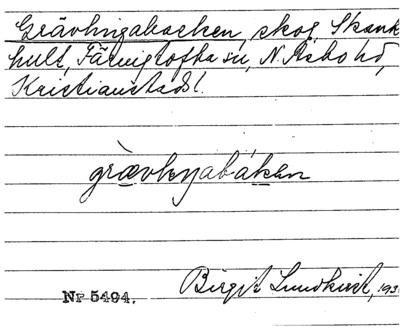 Grävlingabacken, skog, Skänk
hult, Färingtofta sn, N. Åsbo hd,
Kristianstads l.
grævlıŋabákən
Birgit Lundkvist, 193
Nr 5494.